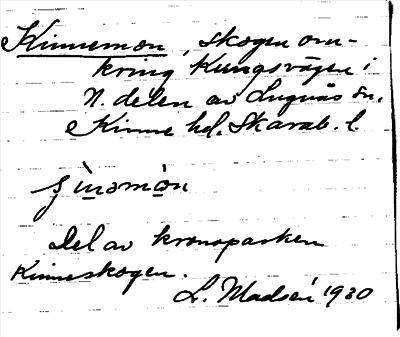 Kinnemon, skogen om-
kring Kungsvägen i
N. delen av Lugnås sn.
Kinne hd. Skarab. l.
Del av kronoparken
Kinneskogen.
L. Madsén 1930